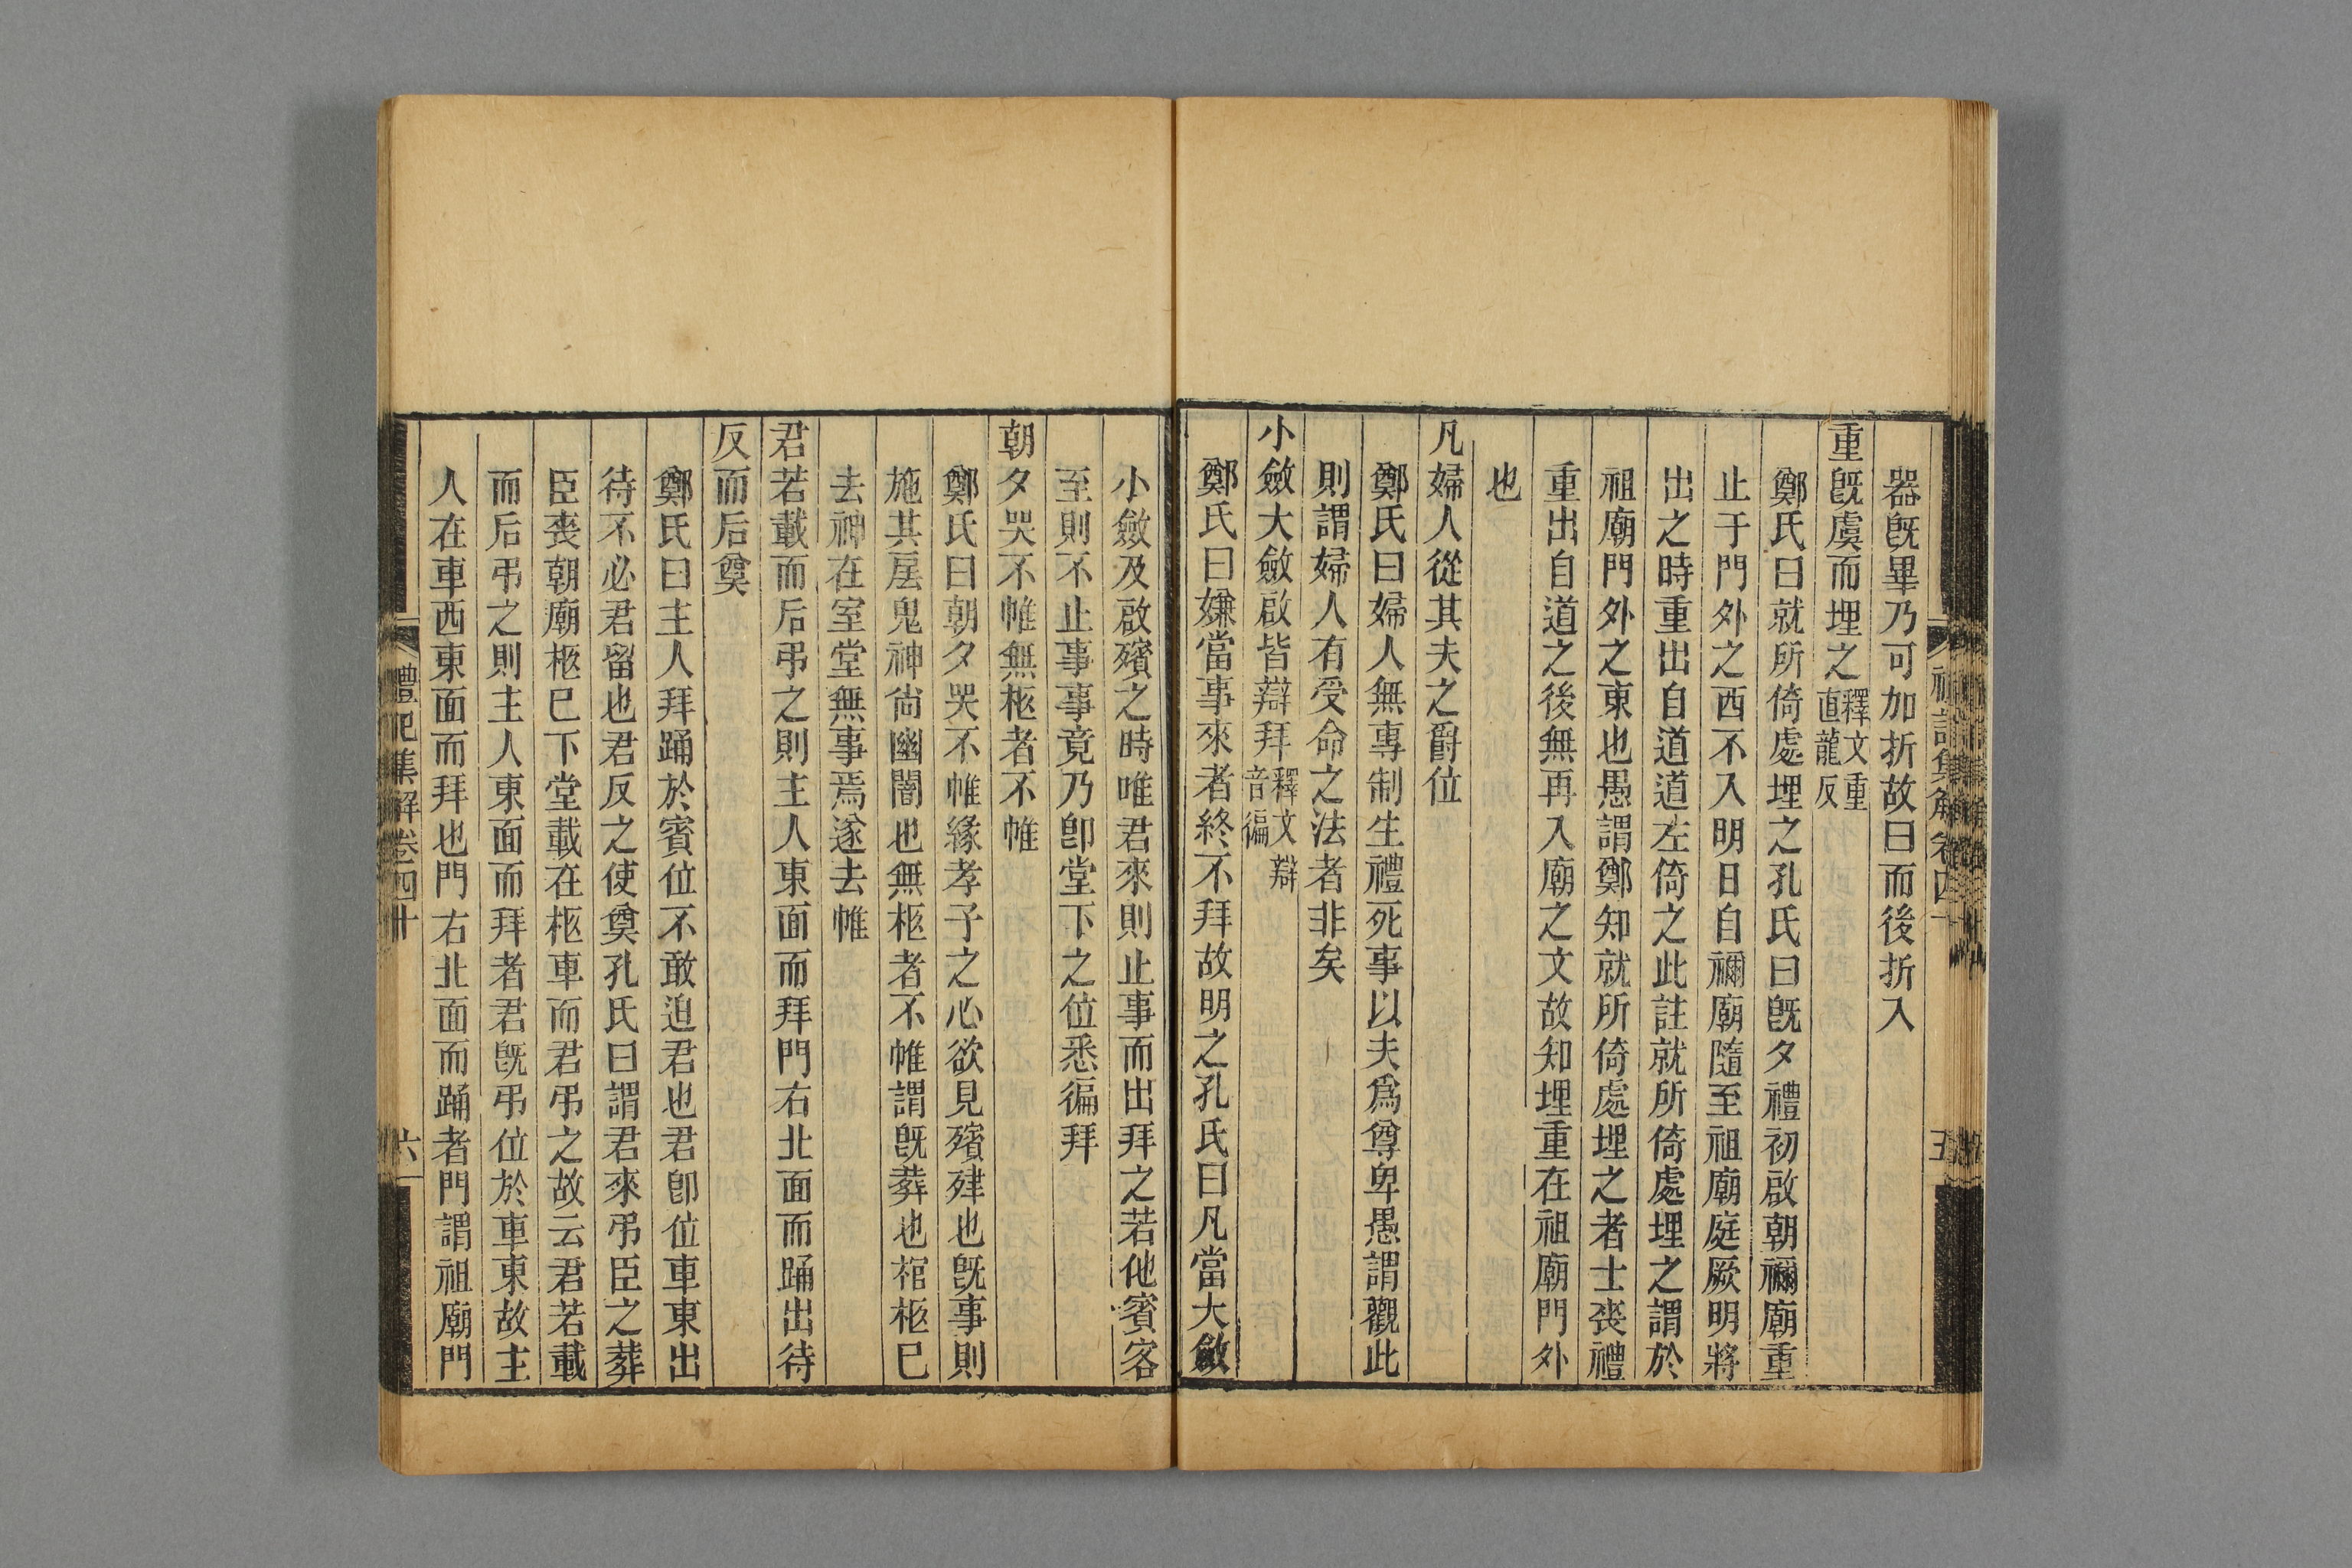 器旣畢乃可加折故曰而後折入
重旣虞而埋之釋文重直龍反
鄭氏曰就所倚處埋之孔氏曰旣夕禮初啟朝禰廟重
止于門外之西不入明日自禰廟隨至祖廟庭厥明將
出之時重出自道道左倚之此註就所倚處埋之謂於
祖廟門外之東也愚謂鄭知就所倚處埋之者士喪禮
重出自道之後無再入廟之文故知埋重在祖廟門外
也
凡婦人從其夫之爵位
鄭氏曰婦人無專制生禮死事以夫爲尊卑愚謂觀此
則謂婦人有受命之法者非矣
小斂大斂啟皆辯拜釋文辯音徧
鄭氏曰嫌當事來者終不拜故明之孔氏曰凡當大斂
小斂及啟殯之時唯君來則止事而出拜之若他賓客
至則不止事事竟乃卽堂下之位悉徧拜
朝夕哭不帷無柩者不帷
鄭氏曰朝夕哭不帷緣孝子之心欲見殯肂也旣事則
施其扂鬼神尙幽闇也無柩者不帷謂旣葬也棺柩已
去神在室堂無事焉遂去帷
君若載而后弔之則主人東面而拜門右北面而踊出待
反而后奠
鄭氏曰主人拜踊於賓位不敢迫君也君卽位車東出
待不必君留也君反之使奠孔氏曰謂君來弔臣之葬
臣喪朝廟柩已下堂載在柩車而君弔之故云君若載
而后弔之則主人東面而拜者君旣弔位於車東故主
人在車西東面而拜也門右北面而踊者門謂祖廟門
禮記集解卷四十
六